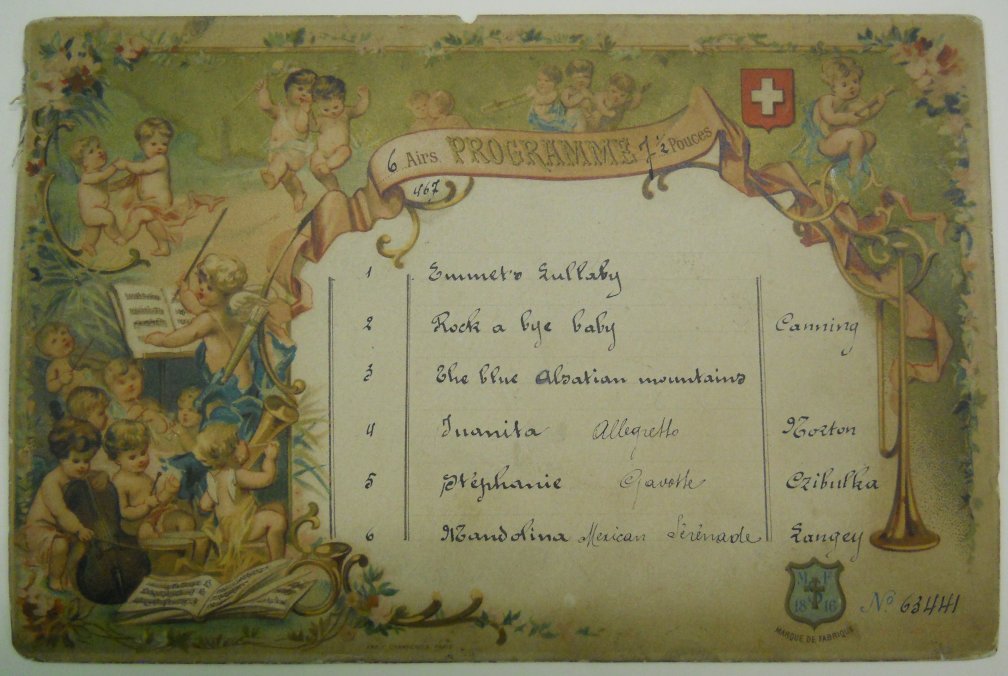 6 Airs PROGRAMME 7 1/2 Pouces
467
1 Emmet's Lullaby
2 Rock a bye baby Canning
3 The blue Alsatian mountains
4 Juanita Allegretto Norton
5 Stéphanie Gavotte Czibulka
6 Mandolina Mexican Sérénade Langey
M F
18 16
MARQUE DE FABRIQUE
No 63441